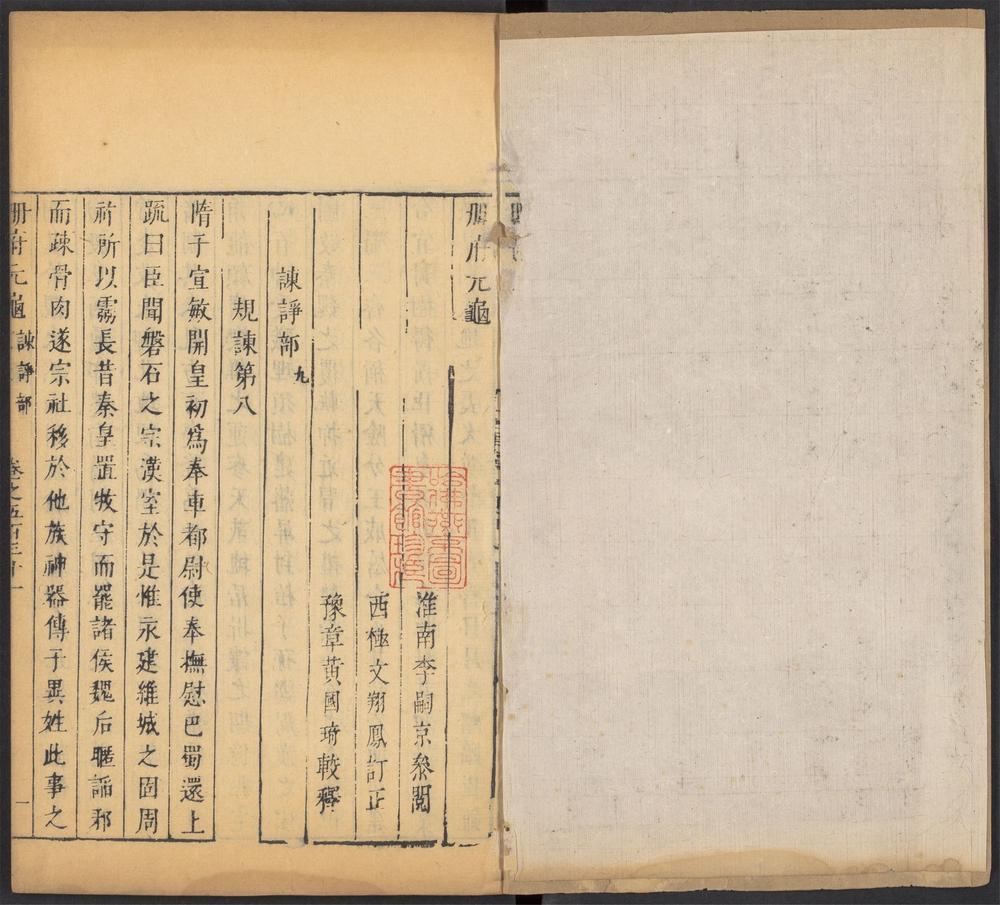 冊府元龜
淮南李嗣京叅閱
西極文翔鳳訂正
豫章黃國琦較釋
諫諍部九
規諫第八
隋于宣敏開皇初爲奉車都尉使奉撫慰巴蜀還上
疏曰臣聞磐石之宗漢室於是惟永建維城之固周
祚所以霛長昔秦皇置牧守而罷諸侯魏后暱謟邪
而疎骨肉遂宗社移於他族神器傳于異姓此事之
册府元龜 諫諍部 卷之五百三十一 一